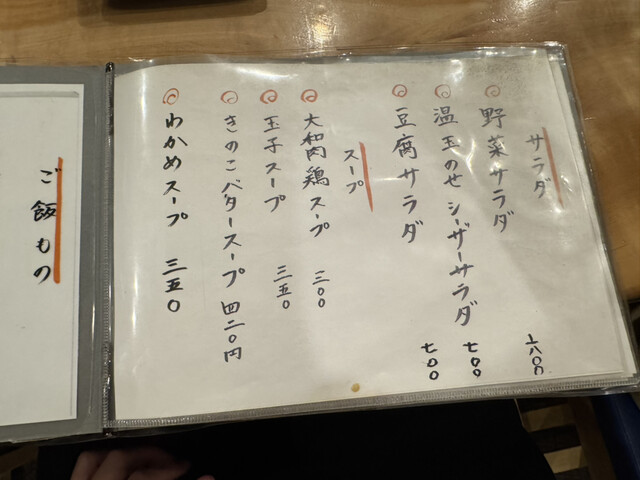 サラダ
野菜サラダ 六〇〇
温玉のせシーザーサラダ 七〇〇
豆腐サラダ 七〇〇
スープ
大和肉鶏スープ 三〇〇
玉子スープ 三五〇
きのこバタースープ 四二〇円
わかめスープ 三五〇
ご飯もの